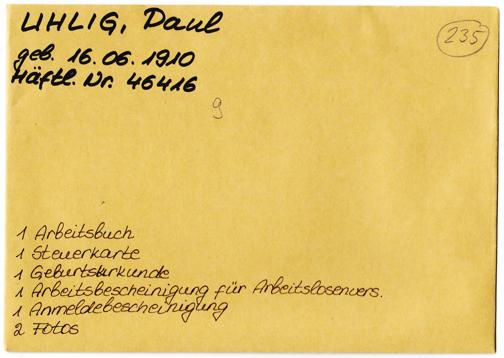 UHLIG, Paul
235
geb. 16.06.1910
Häftl. Nr. 46416
9
1 Arbeitsbuch
1 Steuerkarte
1 Geburtsurkunde
1 Arbeitsbescheinigung für Arbeitslosenvers.
1 Anmeldebescheinigung
2 Fotos